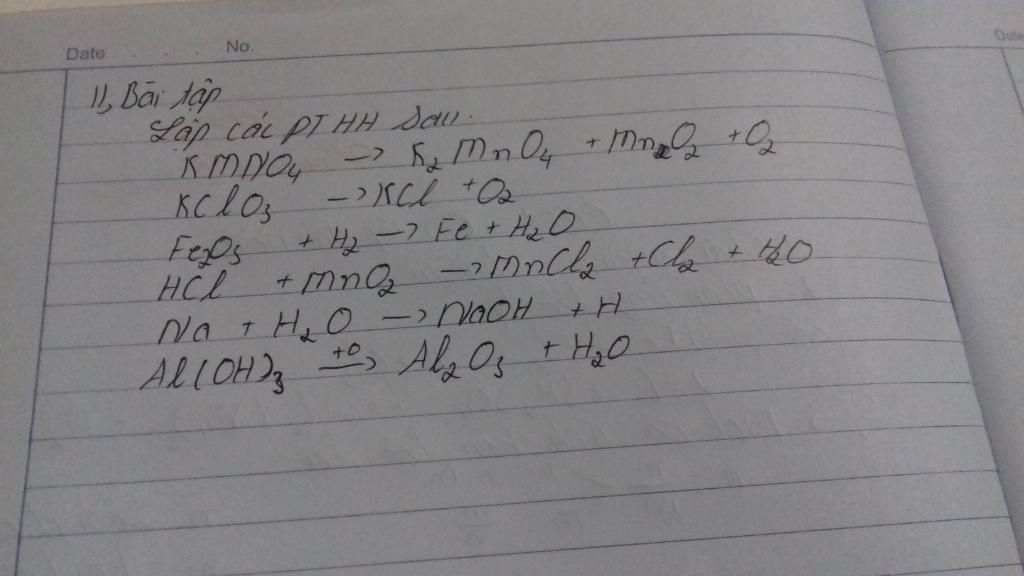 Date . . . No.
Date
II, Bài tập
Lập các PTHH sau.
KMNO₄ → K₂MnO₄ + MnO₂ + O₂
KClO₃ → KCl + O₂
Fe₂O₃ + H₂ → Fe + H₂O
HCl + MnO₂ → MnCl₂ + Cl₂ + H₂O
Na + H₂O → NaOH + H
Al(OH)₃ +0→ Al₂O₃ + H₂O